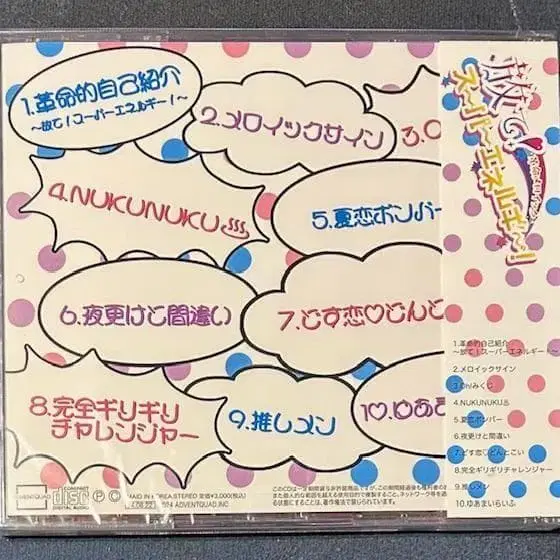 1.革命的自己紹介
～放て！スーパーエネルギー！～
2.メロイックサイン
3.O
4.NUKUNUKU♨
5.夏恋ボンバー
6.夜更けと間違い
7.どす恋♡どんと
8.完全ギリギリ
チャレンジャー
9.推しメン
10.ゆあ
放て!
スーパーエネルギー!
1.革命的自己紹介
～放て！スーパーエネルギー！～
2.メロイックサイン
3.Oh!みくじ
4.NUKUNUKU♨
5.夏恋ボンバー
6.夜更けと間違い
7.どす恋♡どんとこい
8.完全ギリギリチャレンジャー
9.推しメン
10.ゆあまいらいふ
ADVENTQUAD
COMPACT
disc
DIGITAL AUDIO
STEREO 定価¥3,000(税込)
ADVENTQUAD.INC